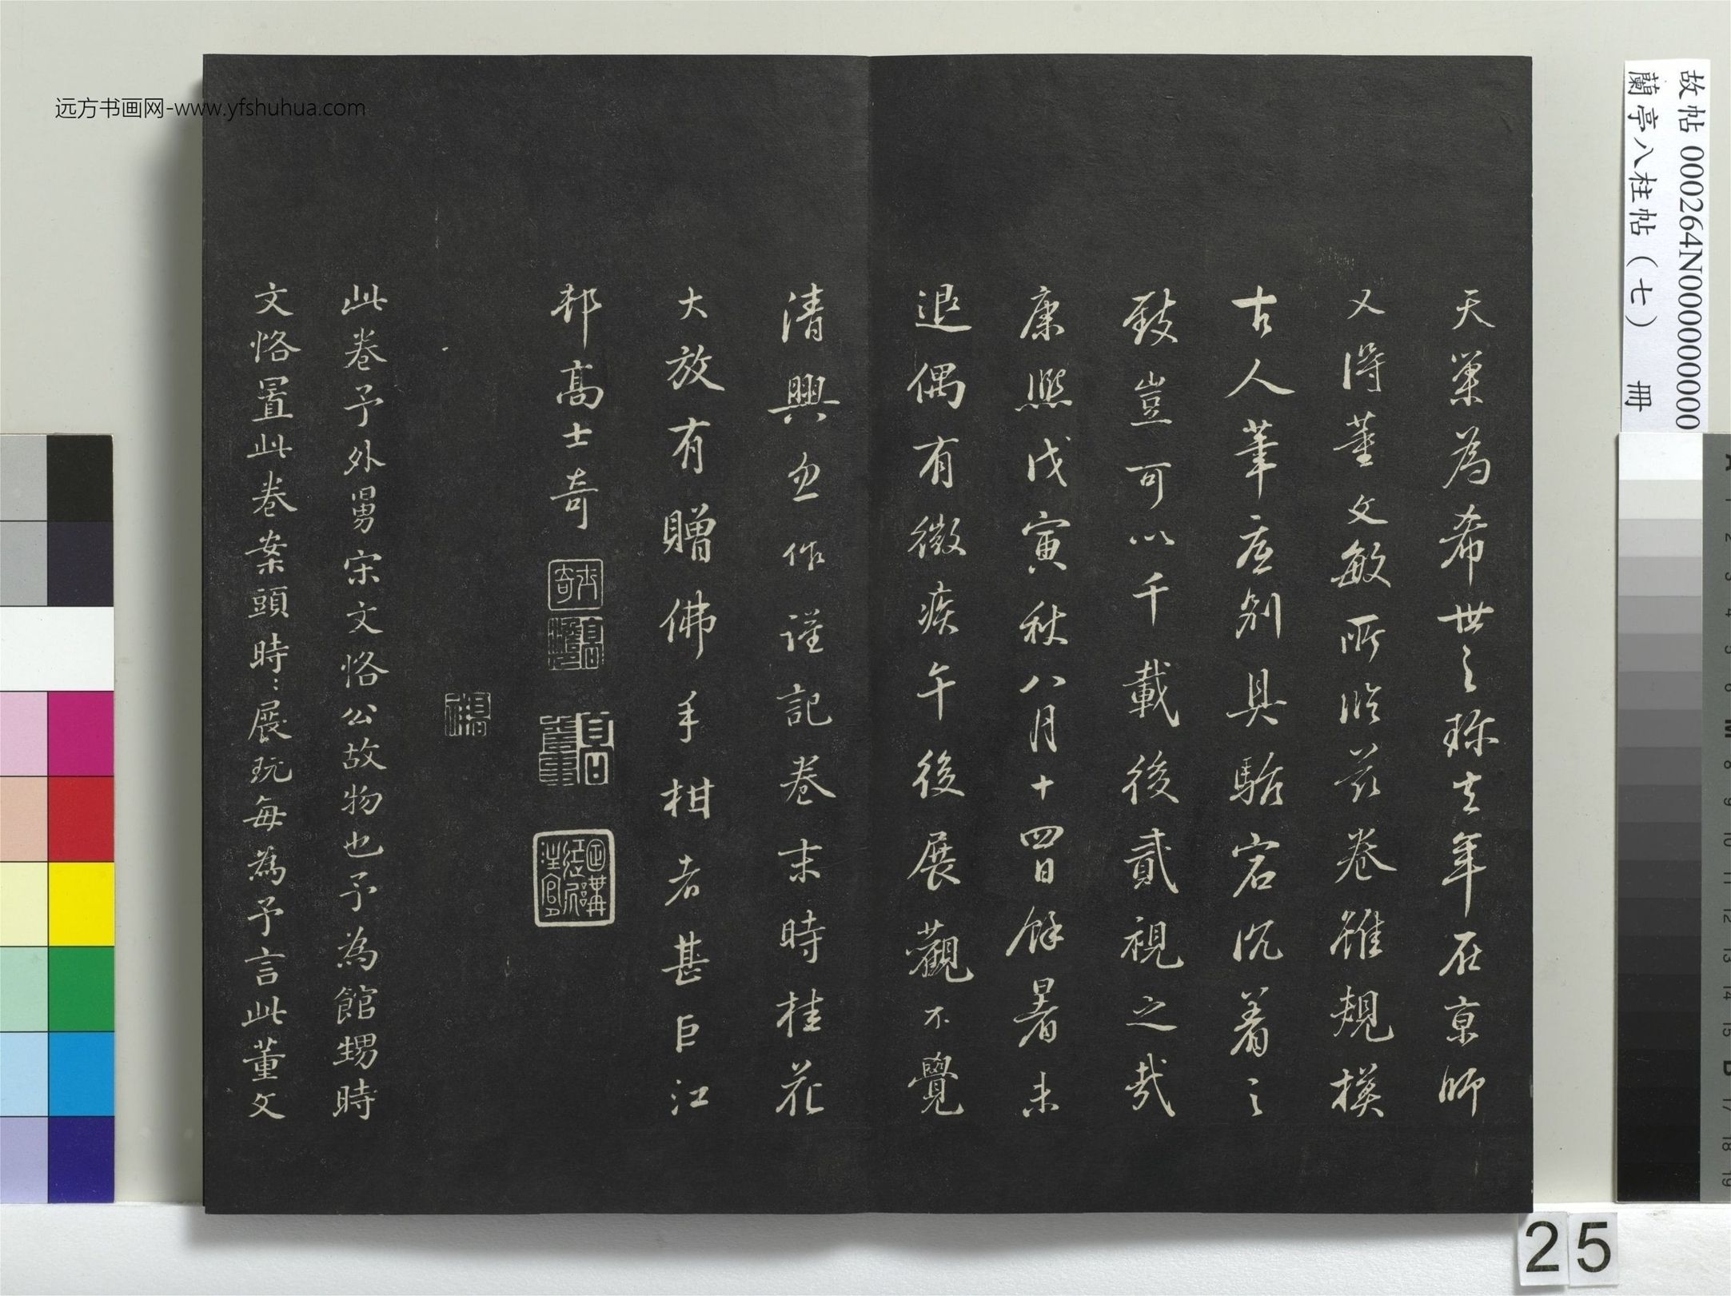 天巢為希世之珎去年在京師
又得董文敏所臨茲卷雖規模
古人筆底別具駘宕沉着之
致豈可以千載後貳視之哉
康熙戊寅秋八月十四日餘暑未
退偶有微疾午後展觀不覺
清興忽作謹記卷末時桂花
大放有贈佛手柑者甚巨江
邨高士奇
此卷予外舅宋文恪公故物也予為館甥時
文恪置此卷案頭時:展玩每為予言此董文
远方书画网-www.yfshuhua.com
故帖 000264N000000000
蘭亭八柱帖（七） 冊
25